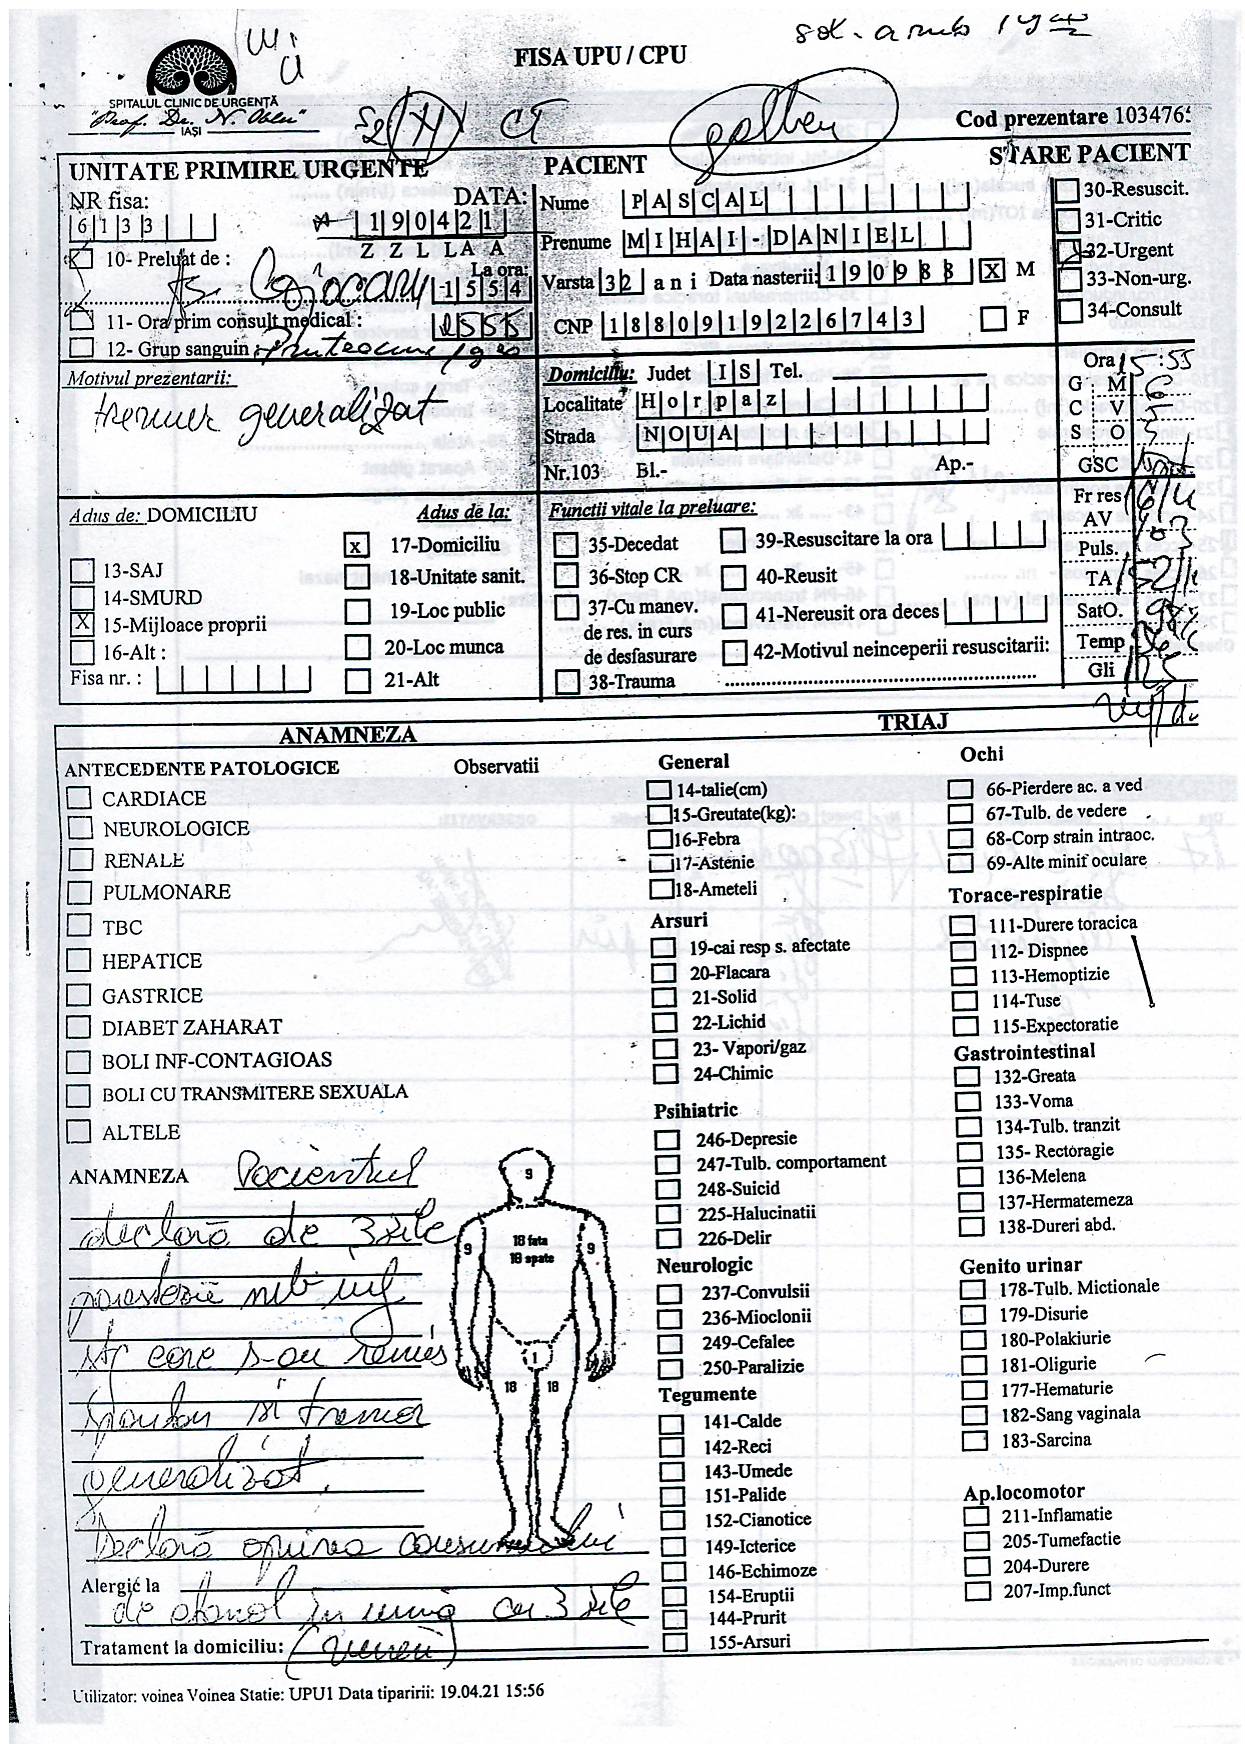 FISA UPU / CPU
SPITALUL CLINIC DE URGENȚĂ
"Prof. Dr. N. Oblu"
IAȘI
CT
galben
Cod prezentare 103476
UNITATE PRIMIRE URGENTE
NR fisa:
6133
DATA:
190421
Z Z L L A A
10- Preluat de :
La ora:
1554
11- Ora prim consult medical :
1555
12- Grup sanguin :
PACIENT
Nume PASCAL
Prenume MIHAI-DANIEL
Varsta 32 ani Data nasterii: 190988 X M
CNP 1880919226743 F
STARE PACIENT
30-Resuscit.
31-Critic
32-Urgent
33-Non-urg.
34-Consult
Motivul prezentarii:
tremur generalizat
Domiciliu: Judet IS Tel.
Localitate Horpaz
Strada NOUA
Nr.103 Bl.- Ap.-
Ora 15:55
G M 6
C V 5
S O
GSC
Fr res
AV
Puls.
TA
SatO.
Temp
Gli 125
Adus de: DOMICILIU
13-SAJ
14-SMURD
X 15-Mijloace proprii
16-Alt :
Fisa nr. :
Adus de la:
x 17-Domiciliu
18-Unitate sanit.
19-Loc public
20-Loc munca
21-Alt
Functii vitale la preluare:
35-Decedat
36-Stop CR
37-Cu manev.
de res. in curs
de desfasurare
38-Trauma
39-Resuscitare la ora
40-Reusit
41-Nereusit ora deces
42-Motivul neinceperii resuscitarii:
ANAMNEZA
ANTECEDENTE PATOLOGICE Observatii
CARDIACE
NEUROLOGICE
RENALE
PULMONARE
TBC
HEPATICE
GASTRICE
DIABET ZAHARAT
BOLI INF-CONTAGIOAS
BOLI CU TRANSMITERE SEXUALA
ALTELE
ANAMNEZA Pacientul
declară de 3 zile
care s-au remis
spontan si tremor
generalizat.
Declară oprirea consumului
Alergic la
de etanol în urmă cu 3 zile
Tratament la domiciliu:
9
18 fata
18 spate
9
9
1
18
18
TRIAJ
General
14-talie(cm)
15-Greutate(kg):
16-Febra
17-Astenie
18-Ameteli
Arsuri
19-cai resp s. afectate
20-Flacara
21-Solid
22-Lichid
23- Vapori/gaz
24-Chimic
Psihiatric
246-Depresie
247-Tulb. comportament
248-Suicid
225-Halucinatii
226-Delir
Neurologic
237-Convulsii
236-Mioclonii
249-Cefalee
250-Paralizie
Tegumente
141-Calde
142-Reci
143-Umede
151-Palide
152-Cianotice
149-Icterice
146-Echimoze
154-Eruptii
144-Prurit
155-Arsuri
Ochi
66-Pierdere ac. a ved
67-Tulb. de vedere
68-Corp strain intraoc.
69-Alte minif oculare
Torace-respiratie
111-Durere toracica
112- Dispnee
113-Hemoptizie
114-Tuse
115-Expectoratie
Gastrointestinal
132-Greata
133-Voma
134-Tulb. tranzit
135- Rectoragie
136-Melena
137-Hermatemeza
138-Dureri abd.
Genito urinar
178-Tulb. Mictionale
179-Disurie
180-Polakiurie
181-Oligurie
177-Hematurie
182-Sang vaginala
183-Sarcina
Ap.locomotor
211-Inflamatie
205-Tumefactie
204-Durere
207-Imp.funct
Utilizator: voinea Voinea Statie: UPU1 Data tiparirii: 19.04.21 15:56